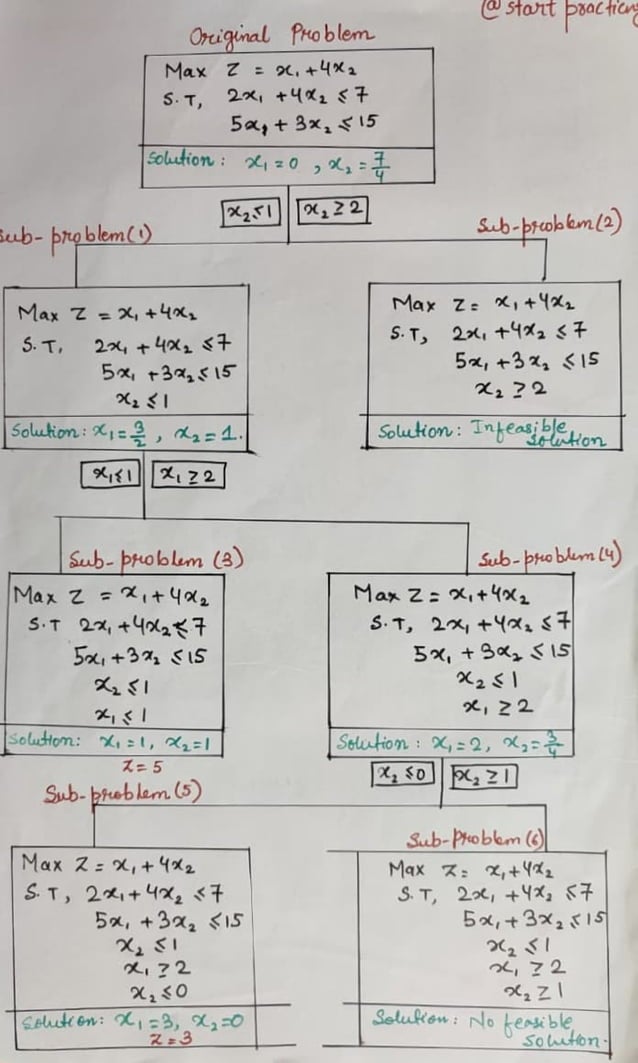 @ start practicing
Original Problem
Max Z = x₁ + 4x₂
S.T, 2x₁ + 4x₂ ≤ 7
5x₁ + 3x₂ ≤ 15
Solution : x₁ = 0 , x₂ = 7/4
x₂ ≤ 1 x₂ ≥ 2
Sub-problem(1)
Max Z = x₁ + 4x₂
S.T, 2x₁ + 4x₂ ≤ 7
5x₁ + 3x₂ ≤ 15
x₂ ≤ 1
Solution: x₁ = 3/2 , x₂ = 1.
Sub-problem(2)
Max Z = x₁ + 4x₂
S.T, 2x₁ + 4x₂ ≤ 7
5x₁ + 3x₂ ≤ 15
x₂ ≥ 2
Solution : Infeasible
Solution
x₁ ≤ 1 x₁ ≥ 2
Sub-problem (3)
Max Z = x₁ + 4x₂
S.T 2x₁ + 4x₂ ≤ 7
5x₁ + 3x₂ ≤ 15
x₂ ≤ 1
x₁ ≤ 1
Solution: x₁ = 1, x₂ = 1
Z = 5
Sub-problem(4)
Max Z = x₁ + 4x₂
S.T, 2x₁ + 4x₂ ≤ 7
5x₁ + 3x₂ ≤ 15
x₂ ≤ 1
x₁ ≥ 2
Solution : x₁ = 2, x₂ = 3/4
x₂ ≤ 0 x₂ ≥ 1
Sub-problem(5)
Max Z = x₁ + 4x₂
S.T, 2x₁ + 4x₂ ≤ 7
5x₁ + 3x₂ ≤ 15
x₂ ≤ 1
x₁ ≥ 2
x₂ ≤ 0
Solution: x₁ = 3, x₂ = 0
Z = 3
Sub-Problem(6)
Max Z = x₁ + 4x₂
S.T, 2x₁ + 4x₂ ≤ 7
5x₁ + 3x₂ ≤ 15
x₂ ≤ 1
x₁ ≥ 2
x₂ ≥ 1
Solution : No feasible
Solution.